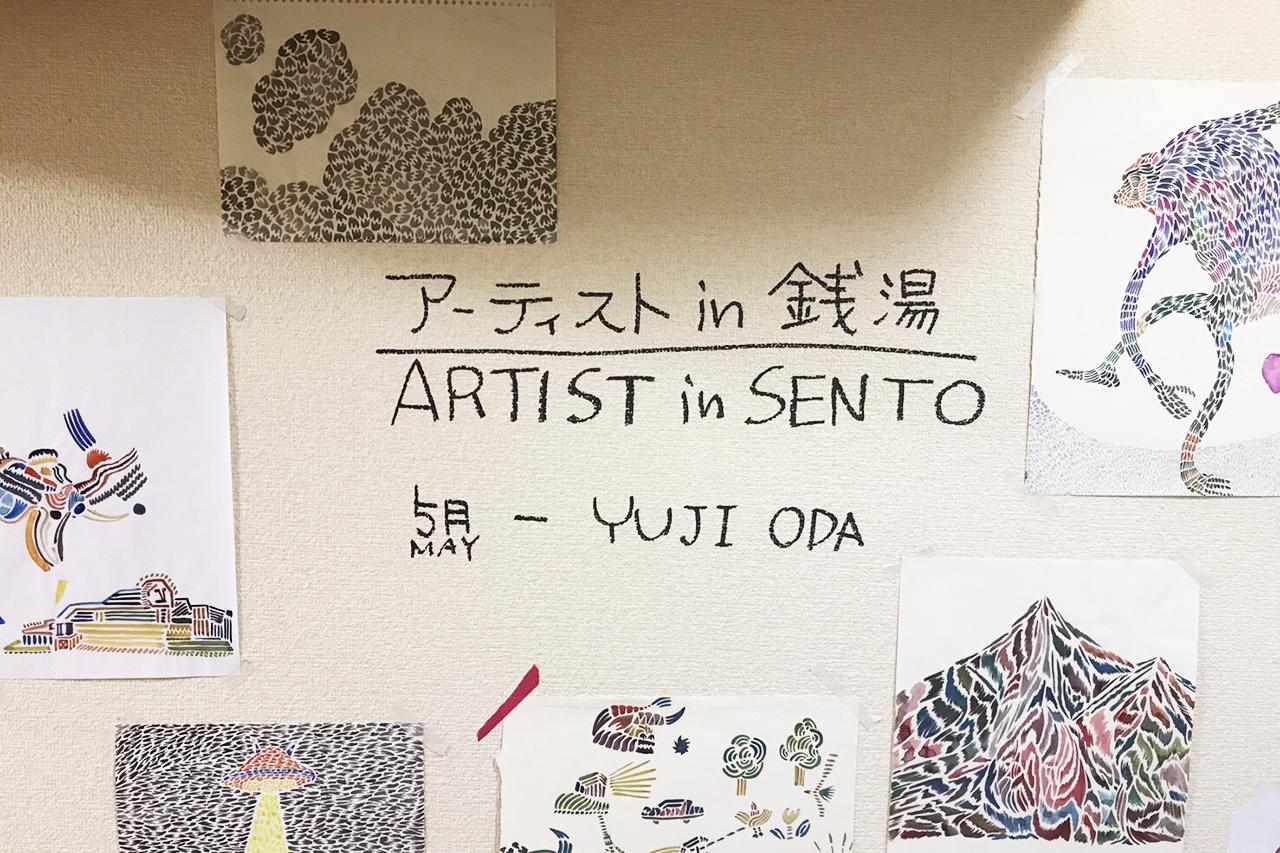 アーティスト in 銭湯
ARTIST in SENTO
5月 - YUJI ODA
MAY